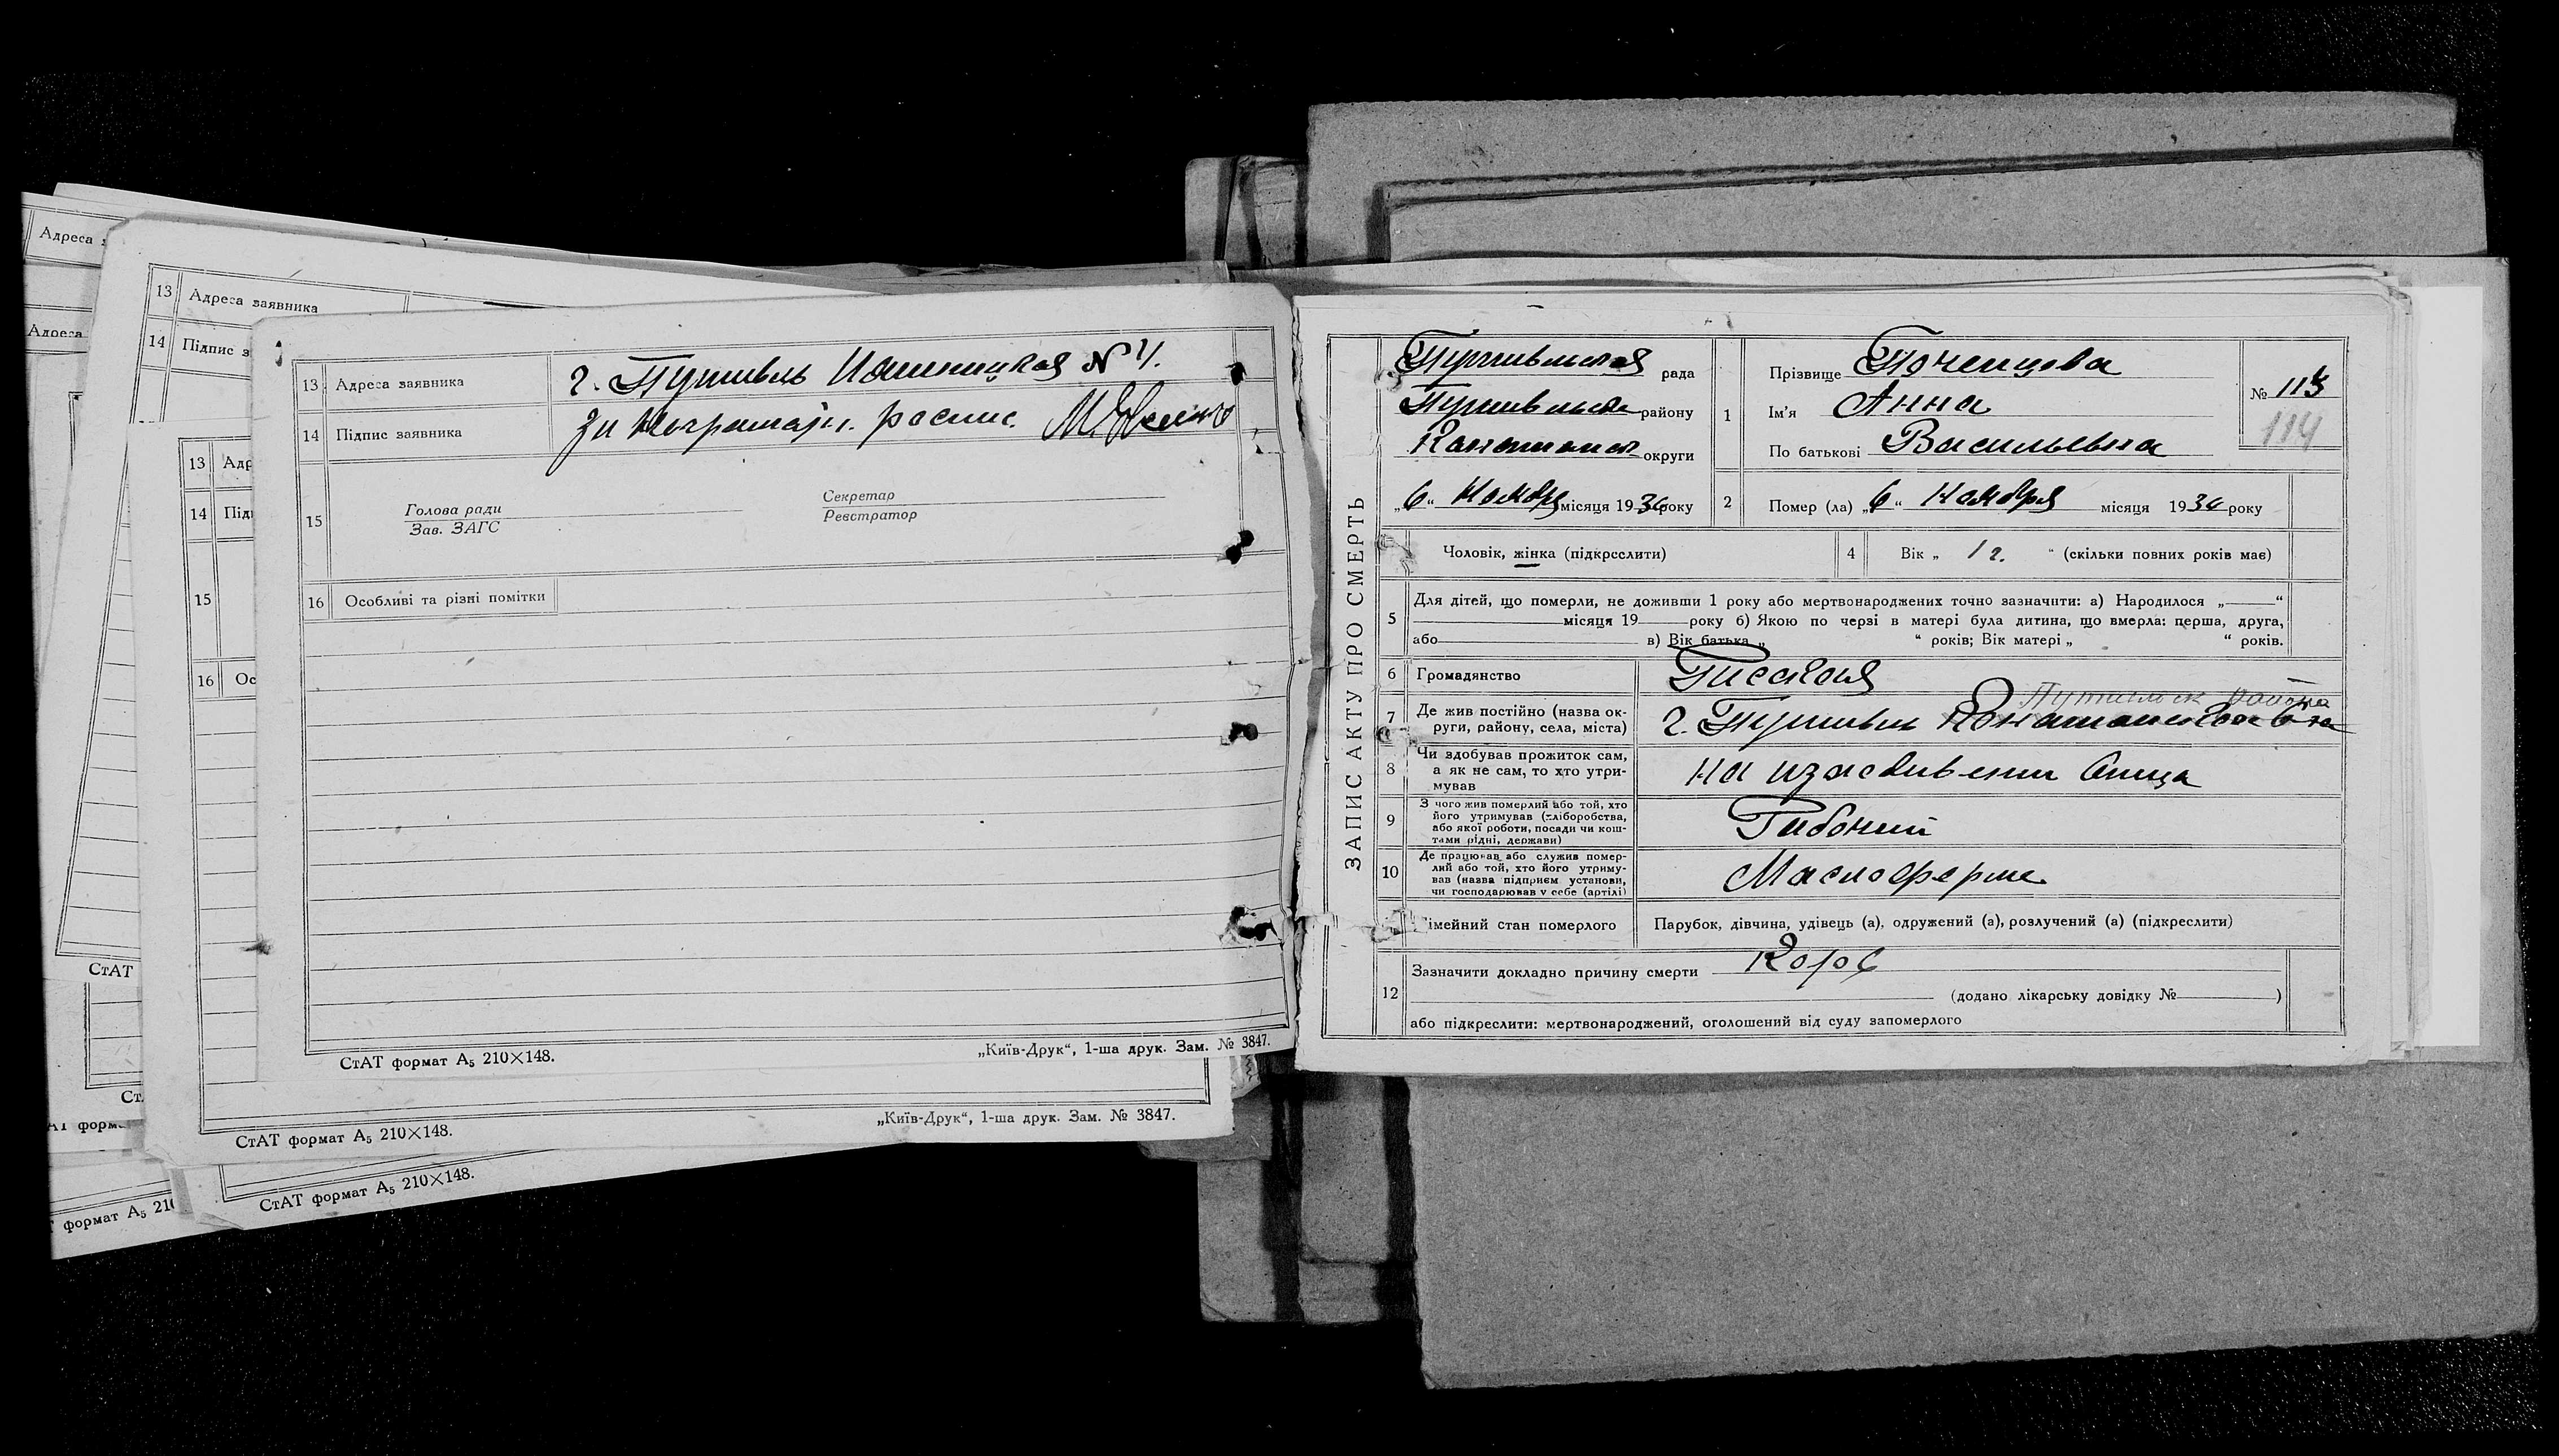 Адреса з
Адреса
13 Адреса заявника
14 Підпис з
13 Адр
14 Підп
15
16 Ос
13 Адреса заявника г. Путивль № 4.
14 Підпис заявника за неграмотн. роспис.
15 Голова ради Секретар
Зав. ЗАГС Реєстратор
16 Особливі та різні помітки
СтАТ формат А5 210×148. „Київ-Друк“, 1-ша друк. Зам. № 3847.
СтАТ
Ст
„Київ-Друк“, 1-ша друк. Зам. № 3847.
СтАТ формат А5 210×148.
СтАТ формат А5 210×148.
формат А5 210
ЗАПИС АКТУ ПРО СМЕРТЬ
Путивльская рада
Путивльск району
Конотопск округи
„6“ Ноября місяця 1934 року
1 Прізвище Поченцова
Ім'я Анна
По батькові Васильевна
№ 113
114
2 Помер (ла) „6“ Ноября місяця 1934 року
Чоловік, жінка (підкреслити)
4 Вік „ 1 г. “ (скільки повних років має)
5 Для дітей, що померли, не доживши 1 року або мертвонароджених точно зазначити: а) Народилося „ “
місяця 19 року б) Якою по черзі в матері була дитина, що вмерла: перша, друга,
або в) Вік батька „ “ років; Вік матері „ “ років.
6 Громадянство Русская
Путивльск района
7 Де жив постійно (назва ок-
руги, району, села, міста) г. Путивль Конотопского
8 Чи здобував прожиток сам,
а як не сам, то хто утри-
мував на иждивении Отца
9 З чого жив померлий або той, хто
його утримував (хліборобства,
або якої роботи, посади чи кош-
тами рідні, держави) Рабочий
10 Де працював або служив помер-
лий або той, хто його утриму-
вав (назва підприєм установи,
чи господарював у себе (артілі) Маслоферме
імейний стан померлого Парубок, дівчина, удівець (а), одружений (а), розлучений (а) (підкреслити)
12 Зазначити докладно причину смерти Корь
(додано лікарську довідку № )
або підкреслити: мертвонароджений, оголошений від суду запомерлого